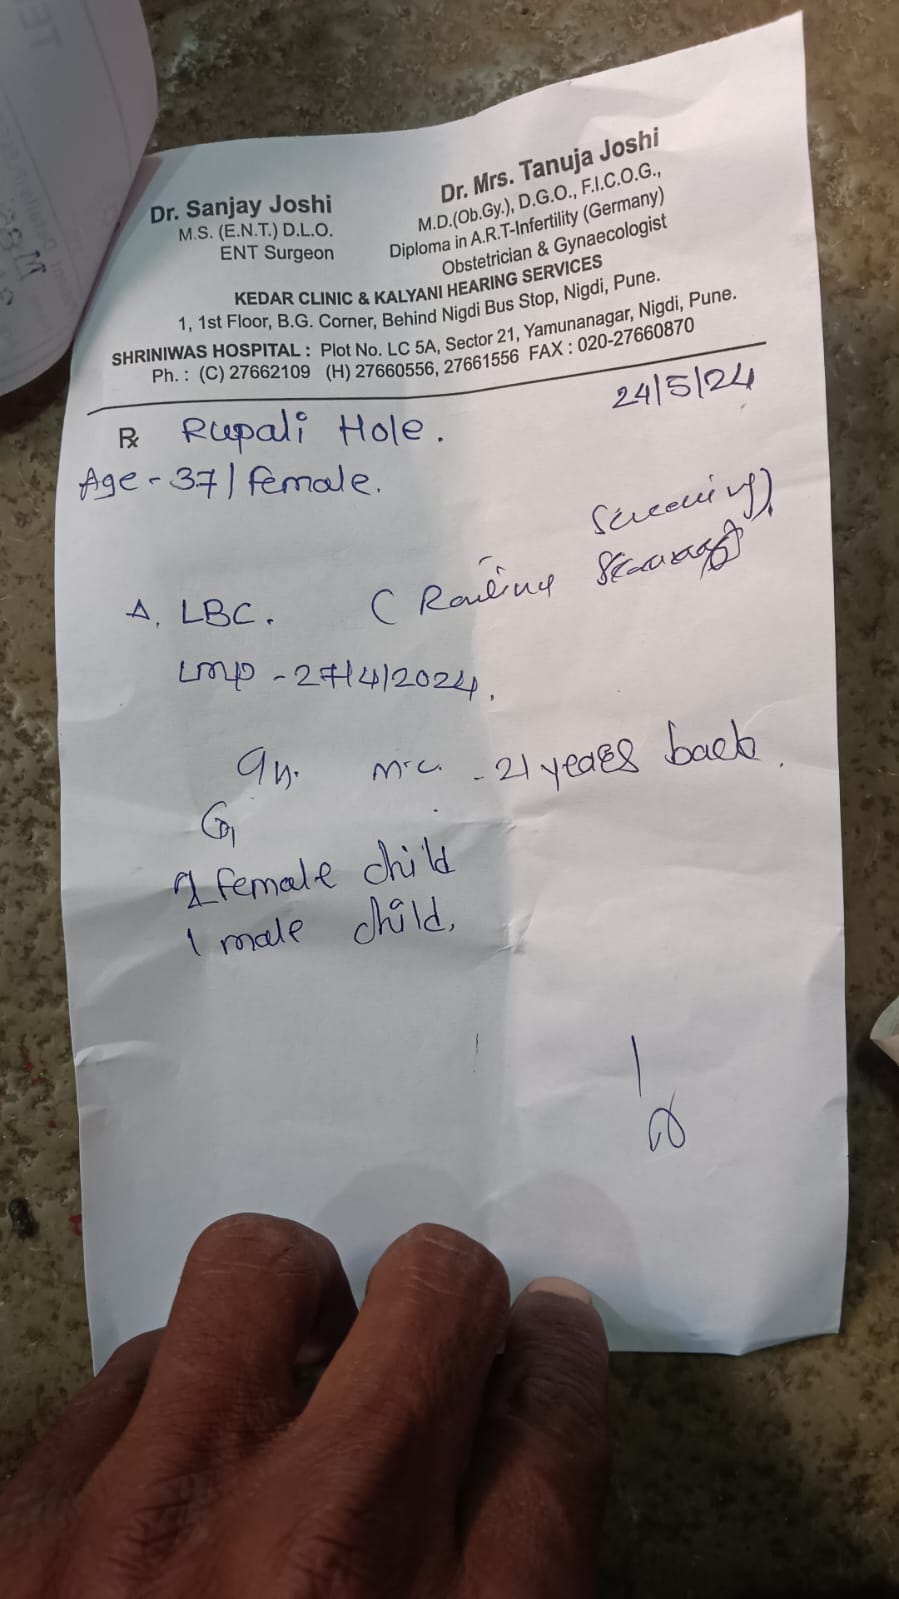 Dr. Sanjay Joshi
M.S. (E.N.T.) D.L.O.
ENT Surgeon
Dr. Mrs. Tanuja Joshi
M.D.(Ob.Gy.), D.G.O., F.I.C.O.G.,
Diploma in A.R.T-Infertility (Germany)
Obstetrician & Gynaecologist
KEDAR CLINIC & KALYANI HEARING SERVICES
1, 1st Floor, B.G. Corner, Behind Nigdi Bus Stop, Nigdi, Pune.
SHRINIWAS HOSPITAL : Plot No. LC 5A, Sector 21, Yamunanagar, Nigdi, Pune.
Ph. : (C) 27662109 (H) 27660556, 27661556 FAX : 020-27660870
24/5/24
℞ Rupali Hole.
Age - 37/female.
Screening)
LBC. (Routine
LMP - 27/4/2024.
- 21 years back.
female child
1 male child.